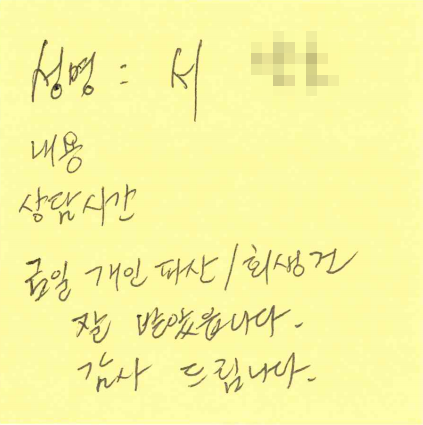 성명 : 서
내용
상담시간
금일 개인파산/회생건
잘 받았습니다.
감사 드립니다.